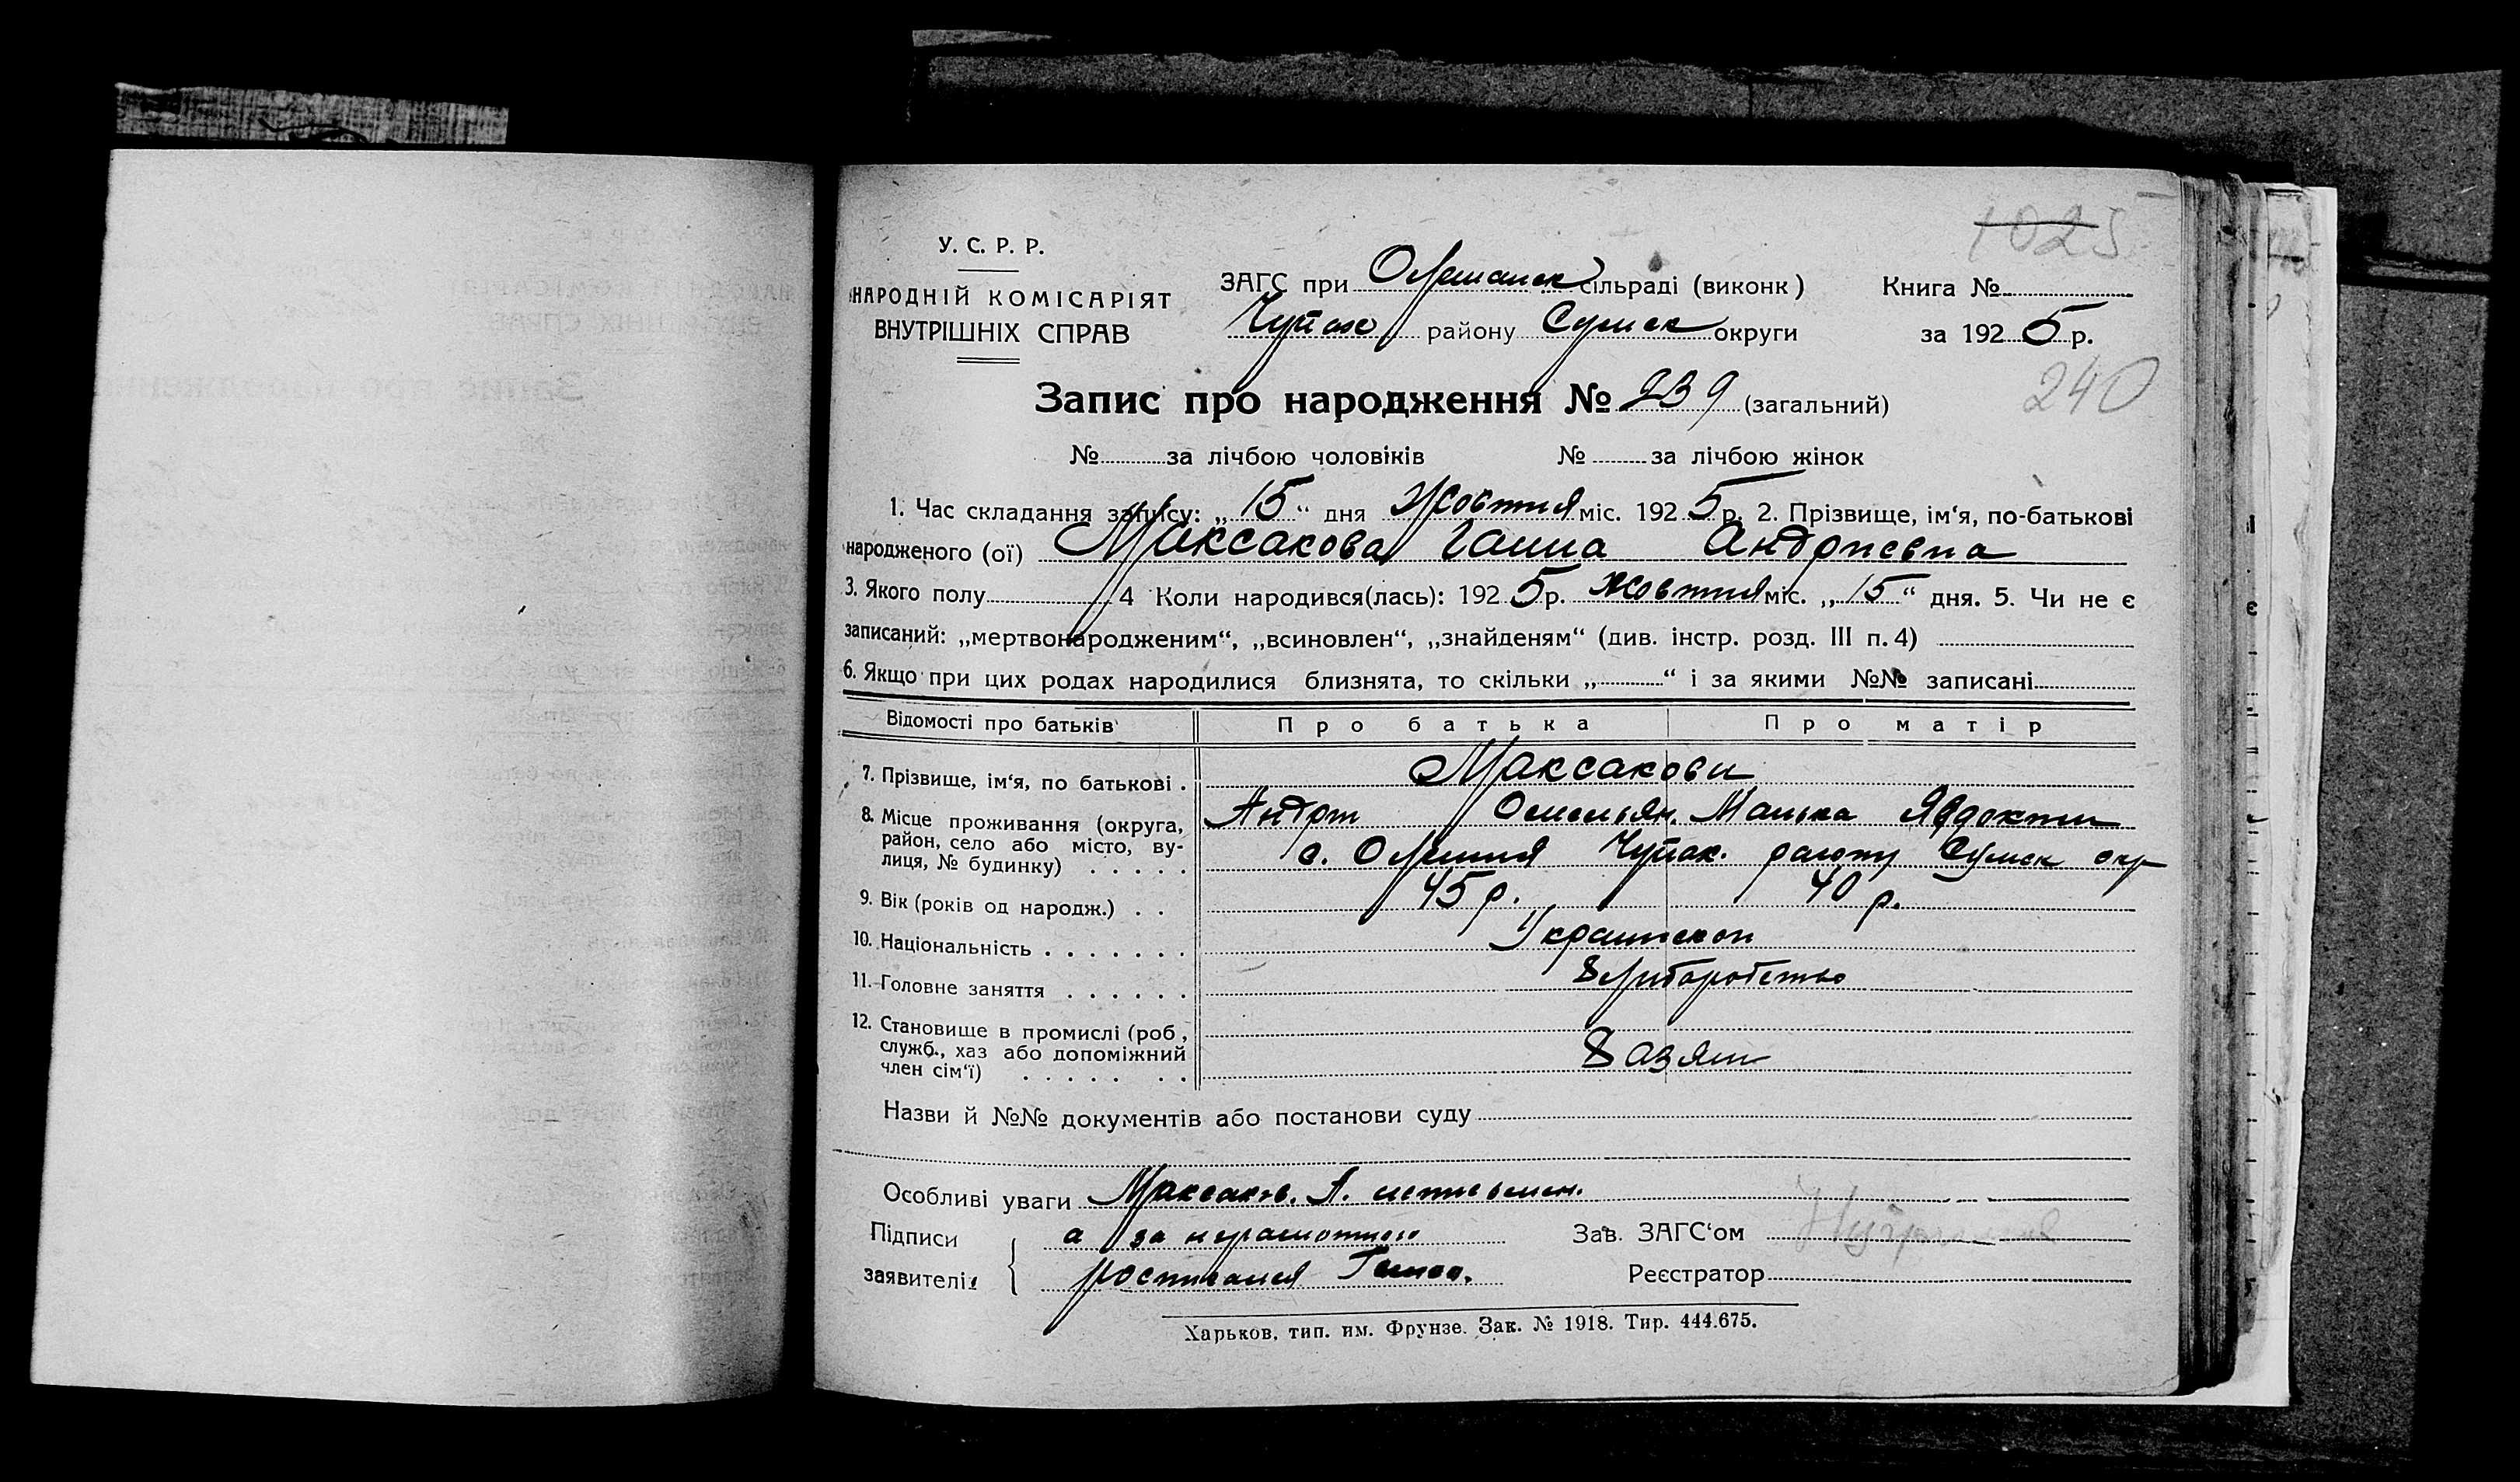 1025
У. С. Р. Р.
НАРОДНІЙ КОМІСАРІЯТ
ВНУТРІШНІХ СПРАВ
ЗАГС при Олешанск сільраді (виконк)
Чупах району Сумск округи
Книга №
за 1925 р.
240
Запис про народження № 239 (загальний)
№ за лічбою чоловіків № за лічбою жінок
1. Час складання запису: „15“ дня Жовтня міс. 1925 р. 2. Прізвище, ім‘я, по-батькові
народженого (ої) Максакова Ганна Андріевна
3. Якого полу 4 Коли народився(лась): 1925 р. жовтня міс. „15“ дня. 5. Чи не є
записаний: „мертвонародженим“, „всиновлен“, „знайденям“ (див. інстр. розд. III п. 4)
6. Якщо при цих родах народилися близнята, то скільки „ “ і за якими №№ записані
Відомості про батьків Про батька Про матір
7. Прізвище, ім‘я, по батькові . Максакови
Андрій Омельян. Явдокии
8. Місце проживання (округа,
район, село або місто, ву-
лиця, № будинку) . . . . . с. Олешня Чупах. району Сумск окр
9. Вік (років од народж.) . . 45 р. 40 р.
10. Національність . . . . . . . Украінской
11. Головне заняття . . . . . . Хлиборобство
12. Становище в промислі (роб,
служб., хаз або допоміжний
член сім‘ї) . . . . . . . Хазяин
Назви й №№ документів або постанови суду
Особливі уваги Максаков. А.
Підписи а за неграмотного
заявителів росписался
Зав. ЗАГС‘ом
Реєстратор
Харьков, тип. им. Фрунзе. Зак. № 1918. Тир. 444.675.